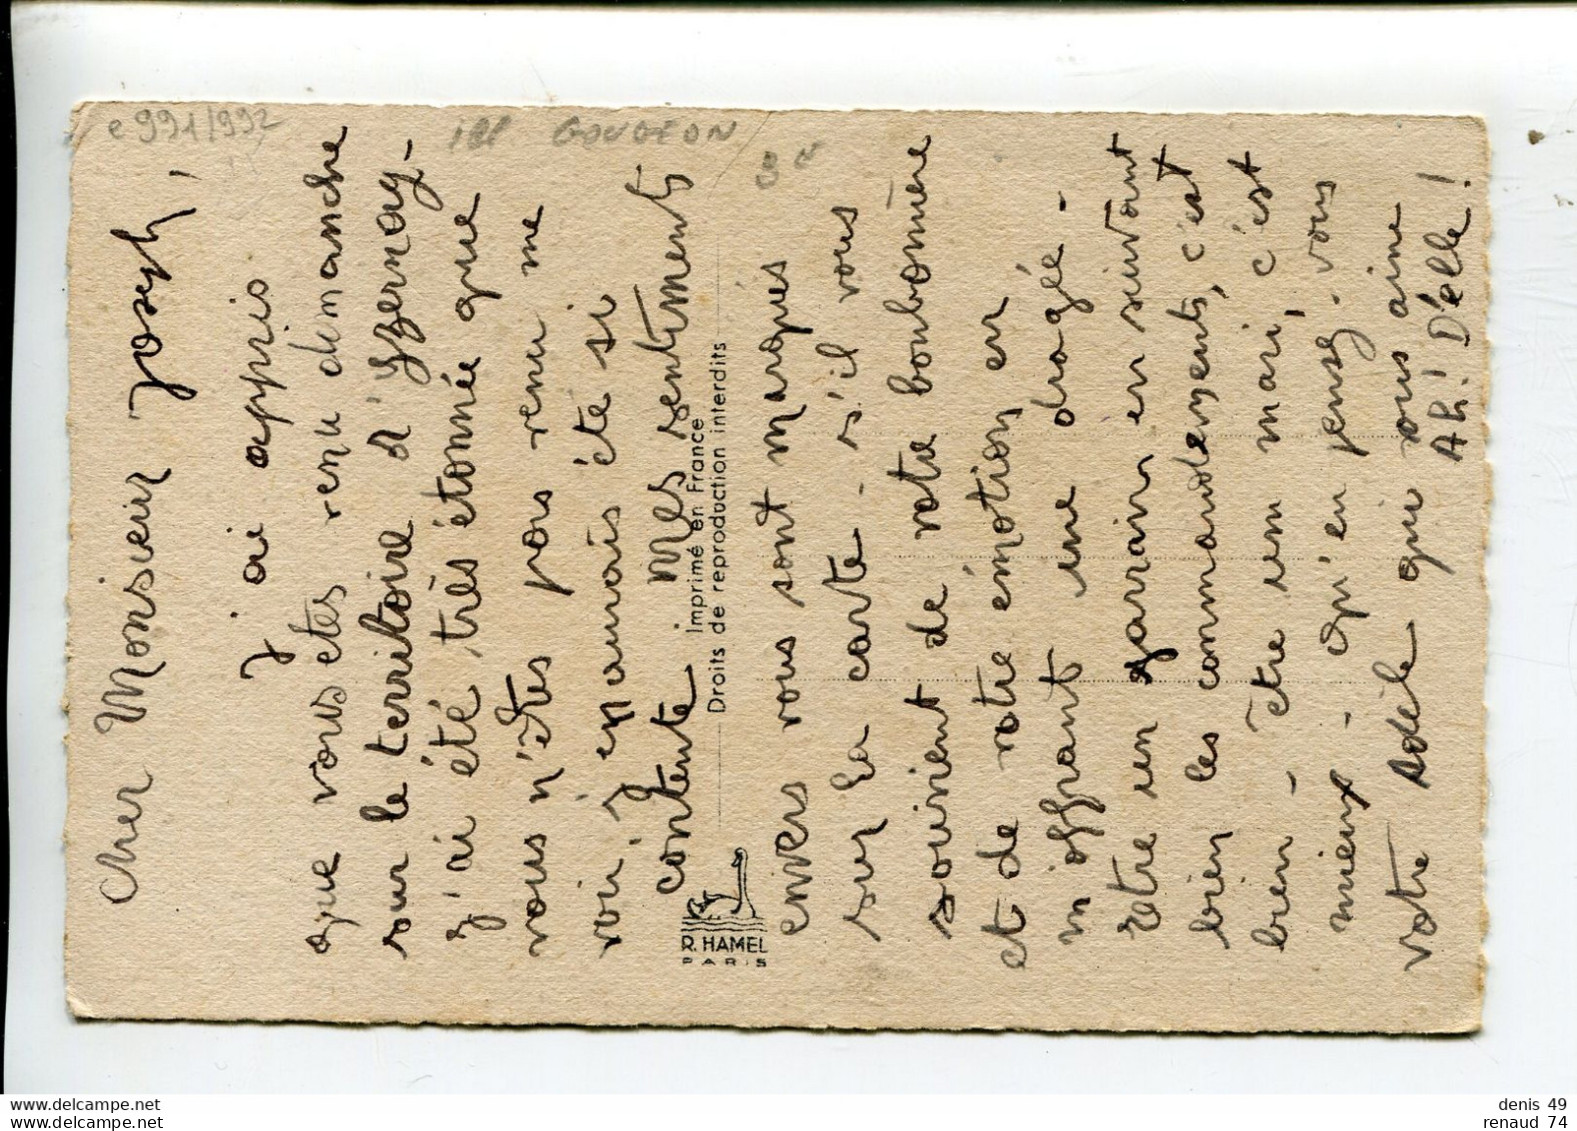 Cher Monsieur Joseph,
J'ai appris
que vous êtes venu dimanche
sur le territoire d'Izernay-
J'ai été très étonnée que
vous n'êtes pas venu me
voir, j'en aurais été si
contente. Mes sentiments
envers vous sont marqués
sur la carte. s'il vous
souvient de votre bonbonnière
et de votre émotion en
m'offrant une dragée-
Etre un parrain en suivant
bien les commandements, c'est
bien - être un mari, c'est
mieux - qu'en pensez-vous
votre Adèle qui vous aime
Ah! Délle!
Imprimé en France
Droits de reproduction interdits
R. HAMEL
PARIS
e 991/992
ill GOUGEON
denis 49
renaud 74